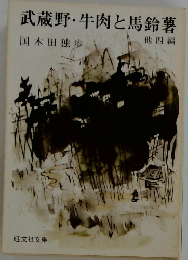 武蔵野・牛肉と馬鈴薯
国木田独歩
他四編
旺文社文庫